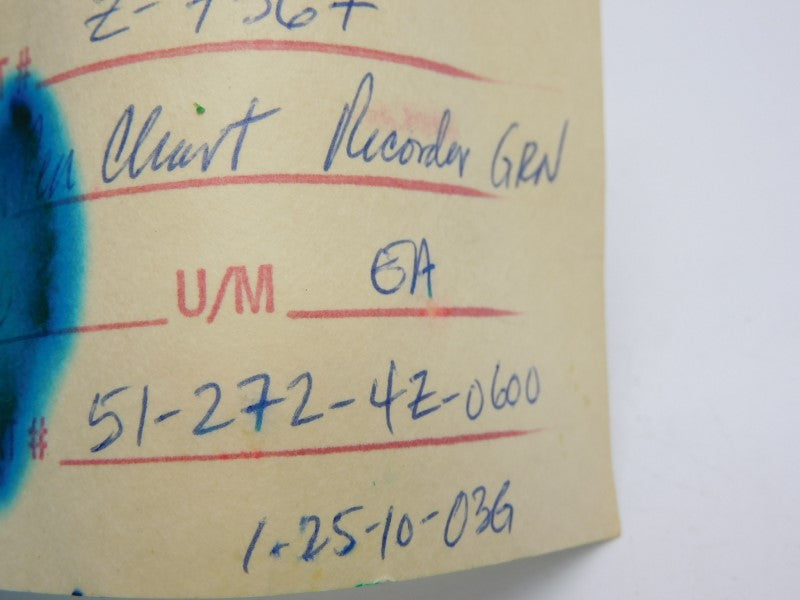 Z-7567
T#
Pen Chart Recorder GRN
U/M EA
# 51-272-4Z-0600
1.25-10-03G